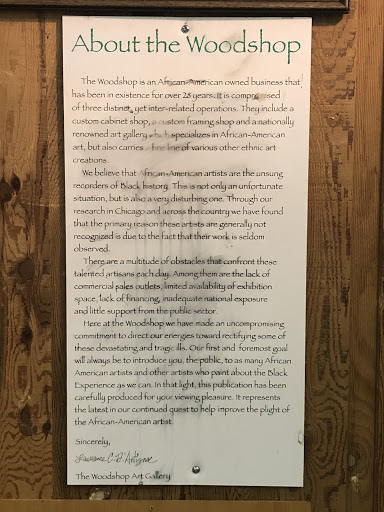 About the Woodshop
The Woodshop is an African-American owned business that
has been in existence for over 28 years. It is comprised
of three distinct, yet inter-related operations. They include a
custom cabinet shop, a custom framing shop and a nationally
renowned art gallery which specializes in African-American
art, but also carries a fine line of various other ethnic art
creations.
We believe that African-American artists are the unsung
recorders of Black history. This is not only an unfortunate
situation, but is also a very disturbing one. Through our
research in Chicago and across the country we have found
that the primary reason these artists are generally not
recognized is due to the fact that their work is seldom
observed.
There are a multitude of obstacles that confront these
talented artisans each day. Among them are the lack of
commercial sales outlets, limited availability of exhibition
space, lack of financing, inadequate national exposure
and little support from the public sector.
Here at the Woodshop we have made an uncompromising
commitment to direct our energies toward rectifying some of
these devastating and tragic ills. Our first and foremost goal
will always be to introduce you, the public, to as many African
American artists and other artists who paint about the Black
Experience as we can. In that light, this publication has been
carefully produced for your viewing pleasure. It represents
the latest in our continued quest to help improve the plight of
the African-American artist.
Sincerely,
The Woodshop Art Gallery